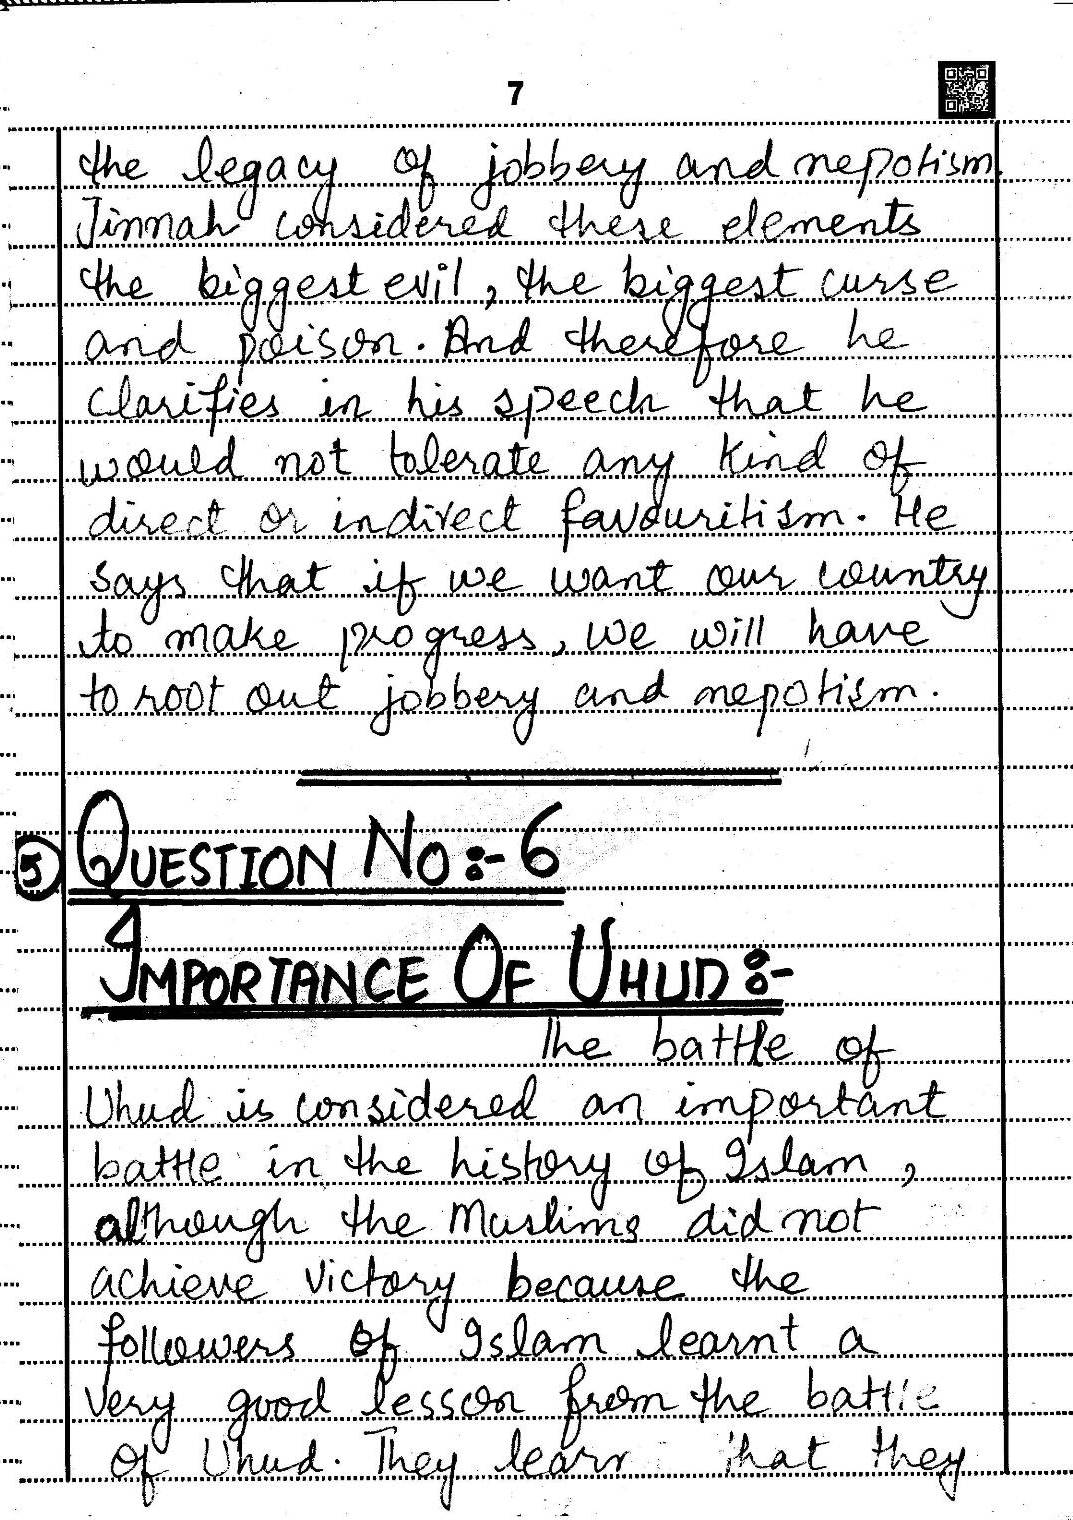 7
the legacy of jobbery and nepotism.
Jinnah considered these elements
the biggest evil, the biggest curse
and poison. And therefore he
clarifies in his speech that he
would not tolerate any kind of
direct or indirect favouritism. He
says that if we want our country
to make progress, we will have
to root out jobbery and nepotism.
5 QUESTION NO:- 6
IMPORTANCE OF UHUD:-
The battle of
Uhud is considered an important
battle in the history of Islam,
although the Muslims did not
achieve victory because the
followers of Islam learnt a
very good lesson from the battle
of Uhud. They learn that they